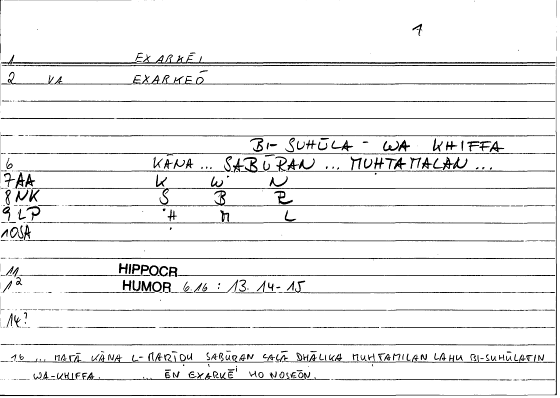 1
1 EXARKEĪ
2 VA EXARKEŌ
BI- SUHŪLA - WA KHIFFA
6 KĀNA ... SABŪRAN ... MUHTAMALAN ...
7AA K W N
8NK S B R
9LP H M L
10SA
11 HIPPOCR
12 HUMOR 6.16 : 13. 14-15
14?
16 ... MATĀ KĀNA L-MARĪDU SABŪRAN CALĀ DHĀLIKA MUHTAMILAN LAHU BI-SUHŪLATIN
WA-KHIFFA. ... ĒN EXARKĒI HO NOSEŌN.